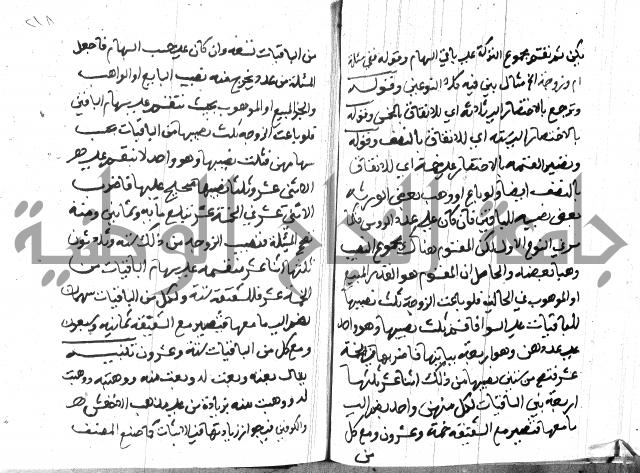 يكن ثم تقسم مجموع التركة على باقي السهام وقوله ففي مسئلة
ام وزوجة الخ مثال بني فيه كلا النوعين وقوله
وترجع بالاختصار الى ثلاثة اي للاتفاق بالخمس وقوله
بالاختصار الى ستة اي للاتفاق بالنصف وقوله
وتصير القسمة بالاختصار على خمسة اي للاتفاق
بالنصف ايضا ولو باع او وهب بعض الورثة
بعض نصيبه للباقين فان كان على عدد الروس فكما
مر في النوع الاول لكن المقسوم هناك مجموع النصيب
وهنا بعضه والحاصل ان المقسوم هو القدر المبيع
او الموهوب في الحالين فلو باعت الزوجة ثلث نصيبها
للباقيات على السوا فاقسم ثلث نصيبها وهو واحد
على عددهن وهو اربعة يباينها فاضربها في الخمسة
عشر فتصح من ستين نصيبها من ذلك اثنا عشر ثلثها
اربعة بين الباقيات لكل منهن واحد يضم الى
ما معها فيصير مع الشقيقة خمسة وعشرون ومع كل
من
٢١٨
من الباقيات تسعة وان كان على حسب السهام فاجعل
المسئلة من عدد يخرج منه نصيب البايع او الواهب
والجزء المبيع او الموهوب بحيث تنقسم على سهام الباقين
فلو باعت الزوجة ثلث نصيبها من الباقيات بحسب
سهامهن فثلث نصيبها وهو واحد لا ينقسم على
الاثنى عشر وثلثا نصيبها صحيح عليها فاضرب
الاثنى عشر في الخمسة عشر تبلغ مائة وثمانين ومنه
تصح المسئلة فنصيب الزوجة من ذلك ستة وثلاثون
ثلثها اثنا عشر منقسمة على سهام الباقيات من
الخمسة عشر فللشقيقة ستة ولكل من الباقيات سهمان
يضم الى ما معها فيصير مع الشقيقة ثمانية وسبعون
ومع كل من الباقيات ستة وعشرون تنبيه
يقال بعته وبعت له وبعت منه ووهبته ووهبت
له ووهبت منه بزيادة من على مذهب الاخفش
والكوفيين فيجوز زيادتها في الاثبات كما صنع المصنف
جامعة النجاح الوطنية